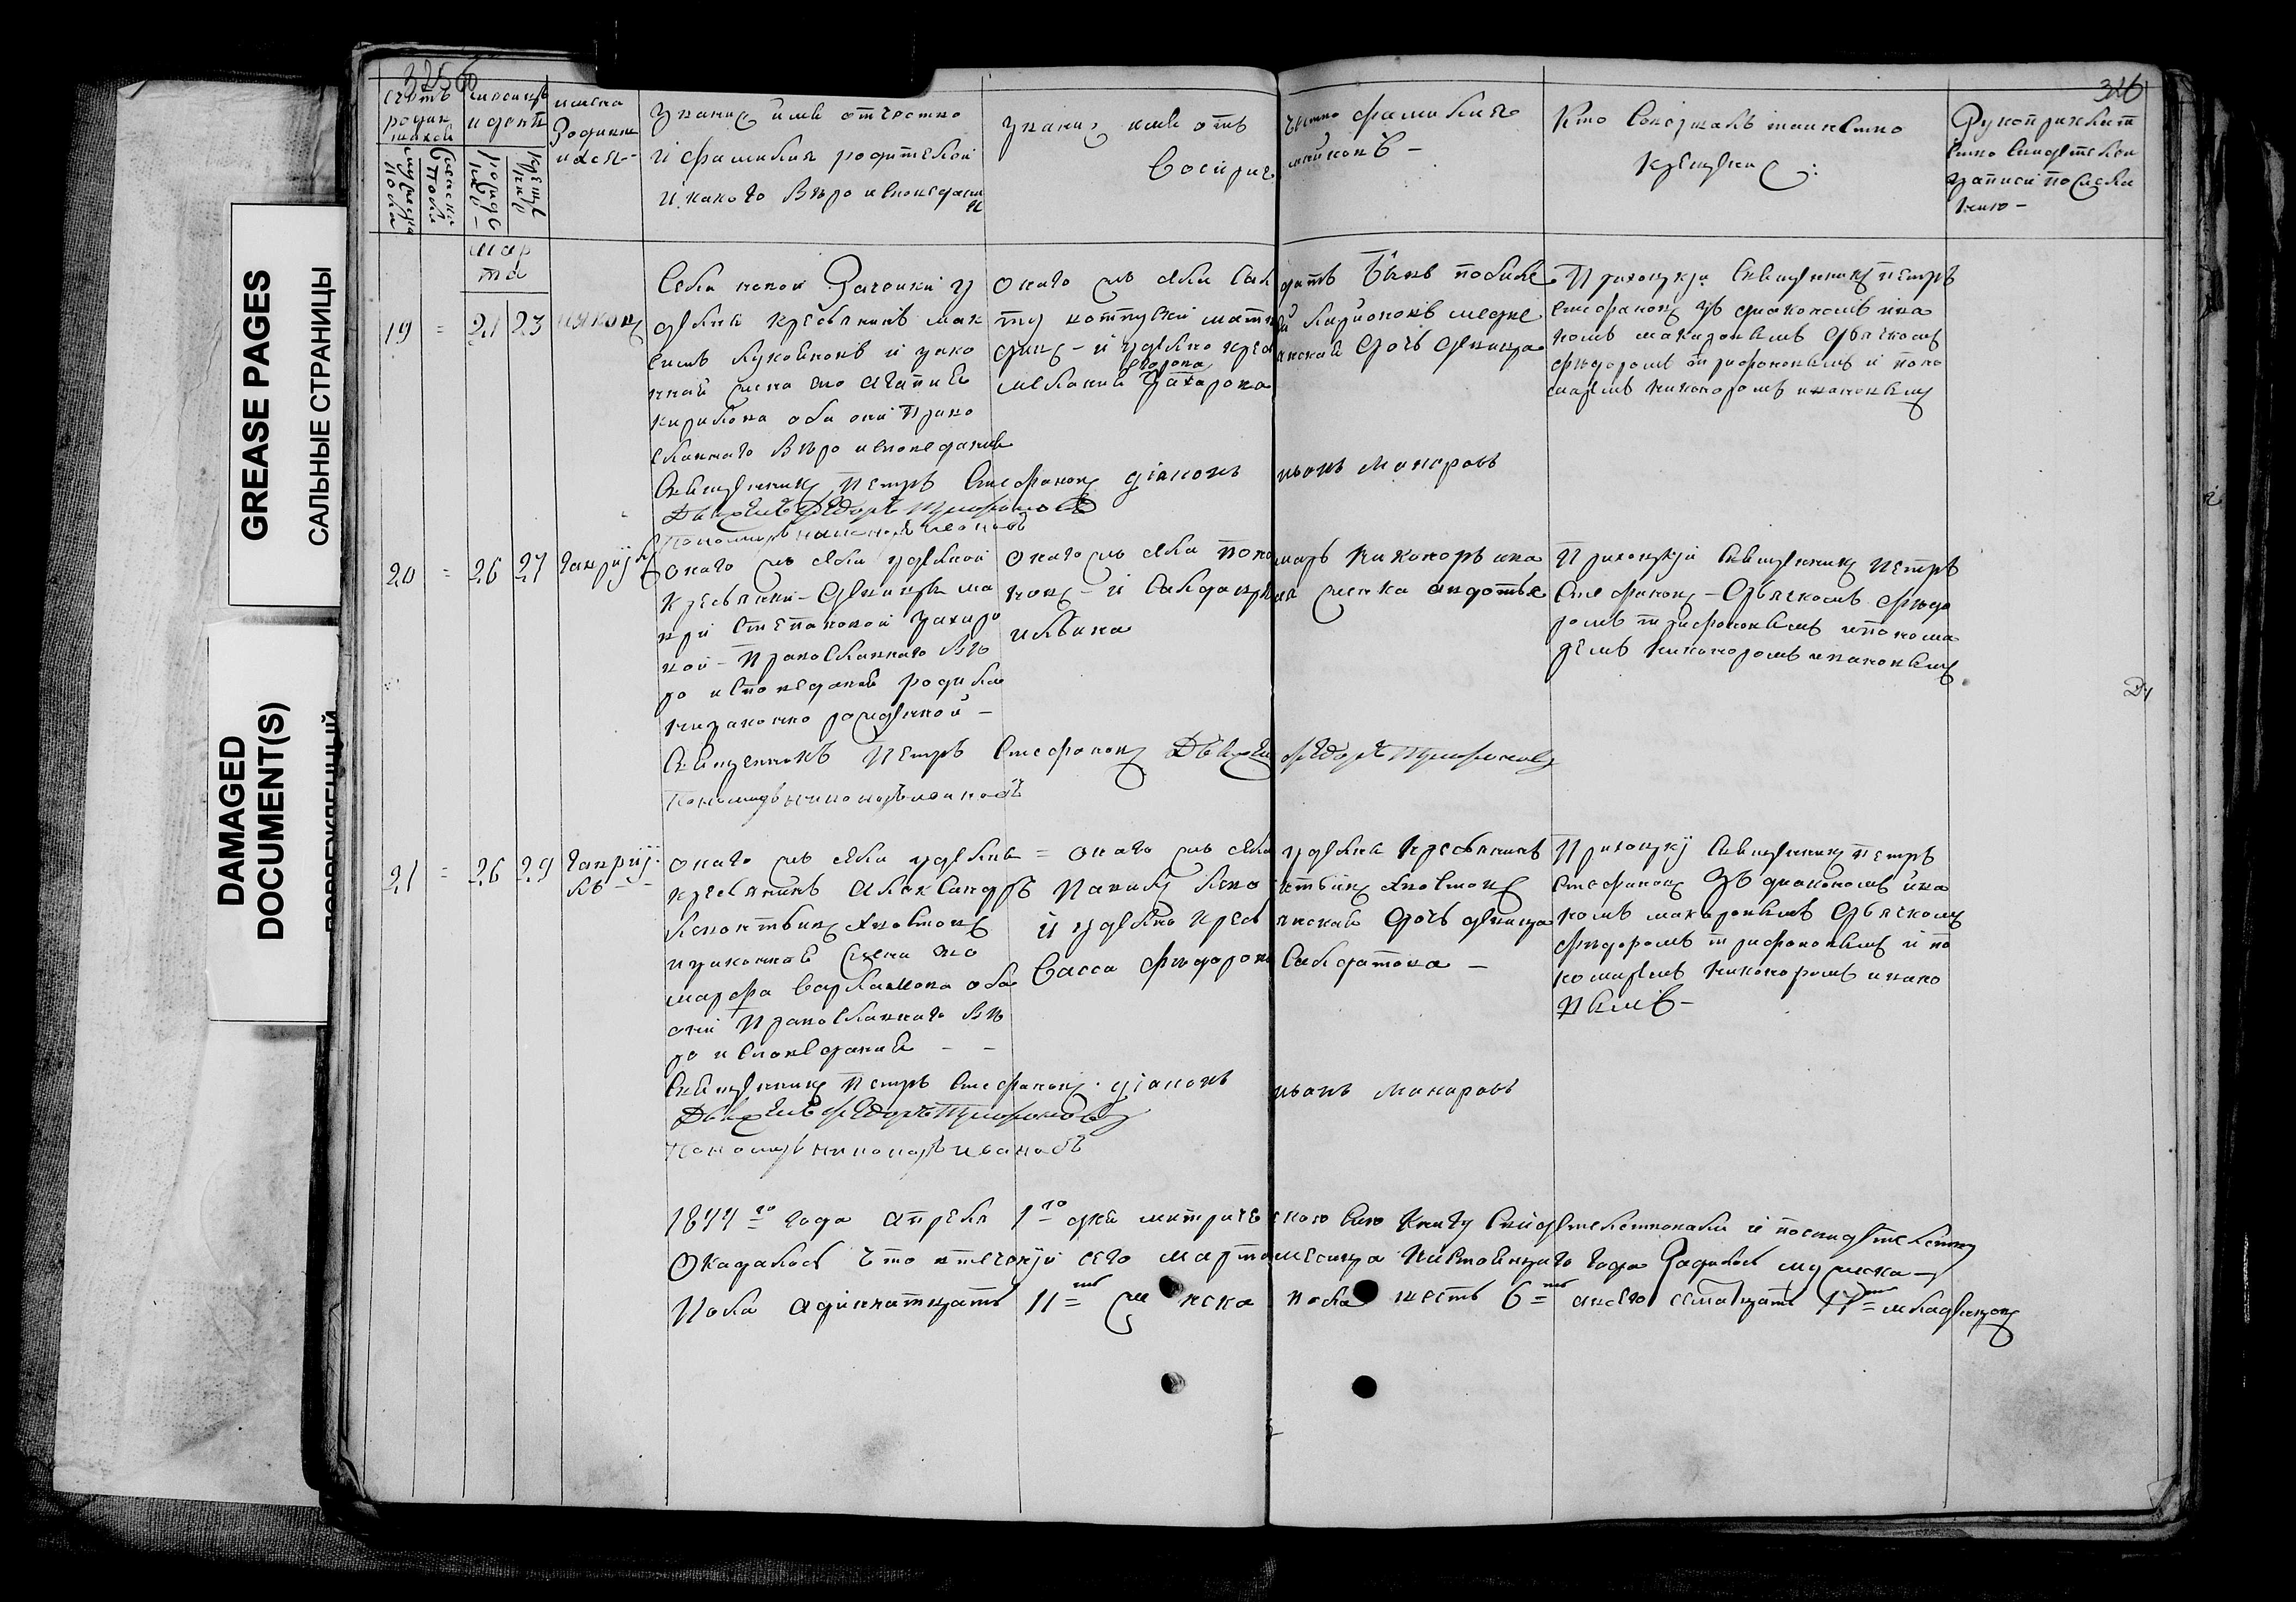 GREASE PAGES
САЛЬНЫЕ СТРАНИЦЫ
DAMAGED
DOCUMENT(S)
326
званіе имя отчество
и фамилия родителей
и какого вероисповедани
я
званіе имя отъ
чество фамилия
воспри
емниковъ -
Кто совершалъ таинство
крещения:
Рукоприклат
ство свидетелей
записи по жела
нию -
мар
та
19 = 21 23
удельной крестьянинъ мак
симъ лукояновъ и зако
нная жена его агапия
кирилова оба они право
славнаго вероисповедания
онаго жъ села сал
датъ
и удельно крес
тьянская дочь девица
мелания захарова
Приходский священникъ петръ
стефановъ зъ диакономъ ива
номъ макаровымъ дьячкомъ
федоромъ трифоновымъ и поно
маремъ никоноромъ ивановымъ
Священникъ Петръ Стефановъ діаконъ иванъ Макаровъ
Дьячекъ Федоръ Трифоновъ
Пономарь никоноръ ивановъ
20 = 26 27
онаго жъ села удельной
крестьянки - девицы ма
врй степановой захаро
вой - православнаго ве
роисповедания родился
незаконно рожденной -
онаго жъ села поно
марь Никоноръ ива
новъ - и салдатска
я женка авдотья
ильина
Приходский священникъ петръ
Стефановъ - дьячкомъ федо
ромъ трифоновымъ и понома
ремъ никоноромъ ивановымъ
Священникъ Петръ Стефановъ Дьячекъ Федоръ Трифоновъ
Пономарь никоноръ ивановъ
21 = 26 29 гаврий
лъ - -
онаго жъ села удельны
крестьянинъ александръ
леонтьивъ хвостовъ
и законная жена его
марфа варламова оба
они православнаго ве
роисповедания - -
= онаго жъ села удельны крестьянинъ
павилъ леонтьивъ хвостовъ
и удельно крестьянская дочь девица
васса федорова салдатова -
Приходский священникъ петръ
стефановъ зъ диакономъ ива
номъ макаровымъ дьячкомъ
федоромъ трифоновымъ и по
номаремъ никоноромъ ивано
вымъ -
Священникъ петръ стефановъ. діаконъ иванъ Макаровъ
Дьячекъ Федоръ Трифоновъ
Пономарь никоноръ ивановъ
1844го года апреля 1го дня метрическою сию книгу свидетельствовали и по свидетельству
Оказалось что втечении сего марта месяца настоящаго года родилось мужска -
Пола адиннатцать 11ть женска пола шесть 6ть а всего семнатцать 17ть младенцовъ